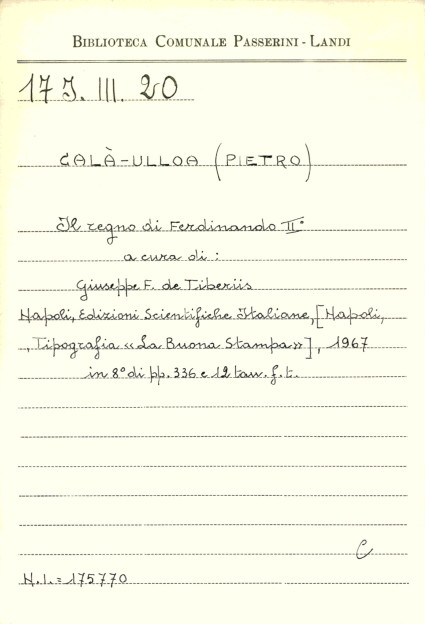 BIBLIOTECA COMUNALE PASSERINI - LANDI
17 J. III. 20
CALÀ-ULLOA (PIETRO)
Il regno di Ferdinando II°
a cura di :
Giuseppe F. de Tiberiis
Napoli, Edizioni Scientifiche Italiane, [Napoli,
Tipografia «La Buona Stampa»], 1967
in 8° di pp. 336 e 12 tav. f. t.
C
N. I. = 175770